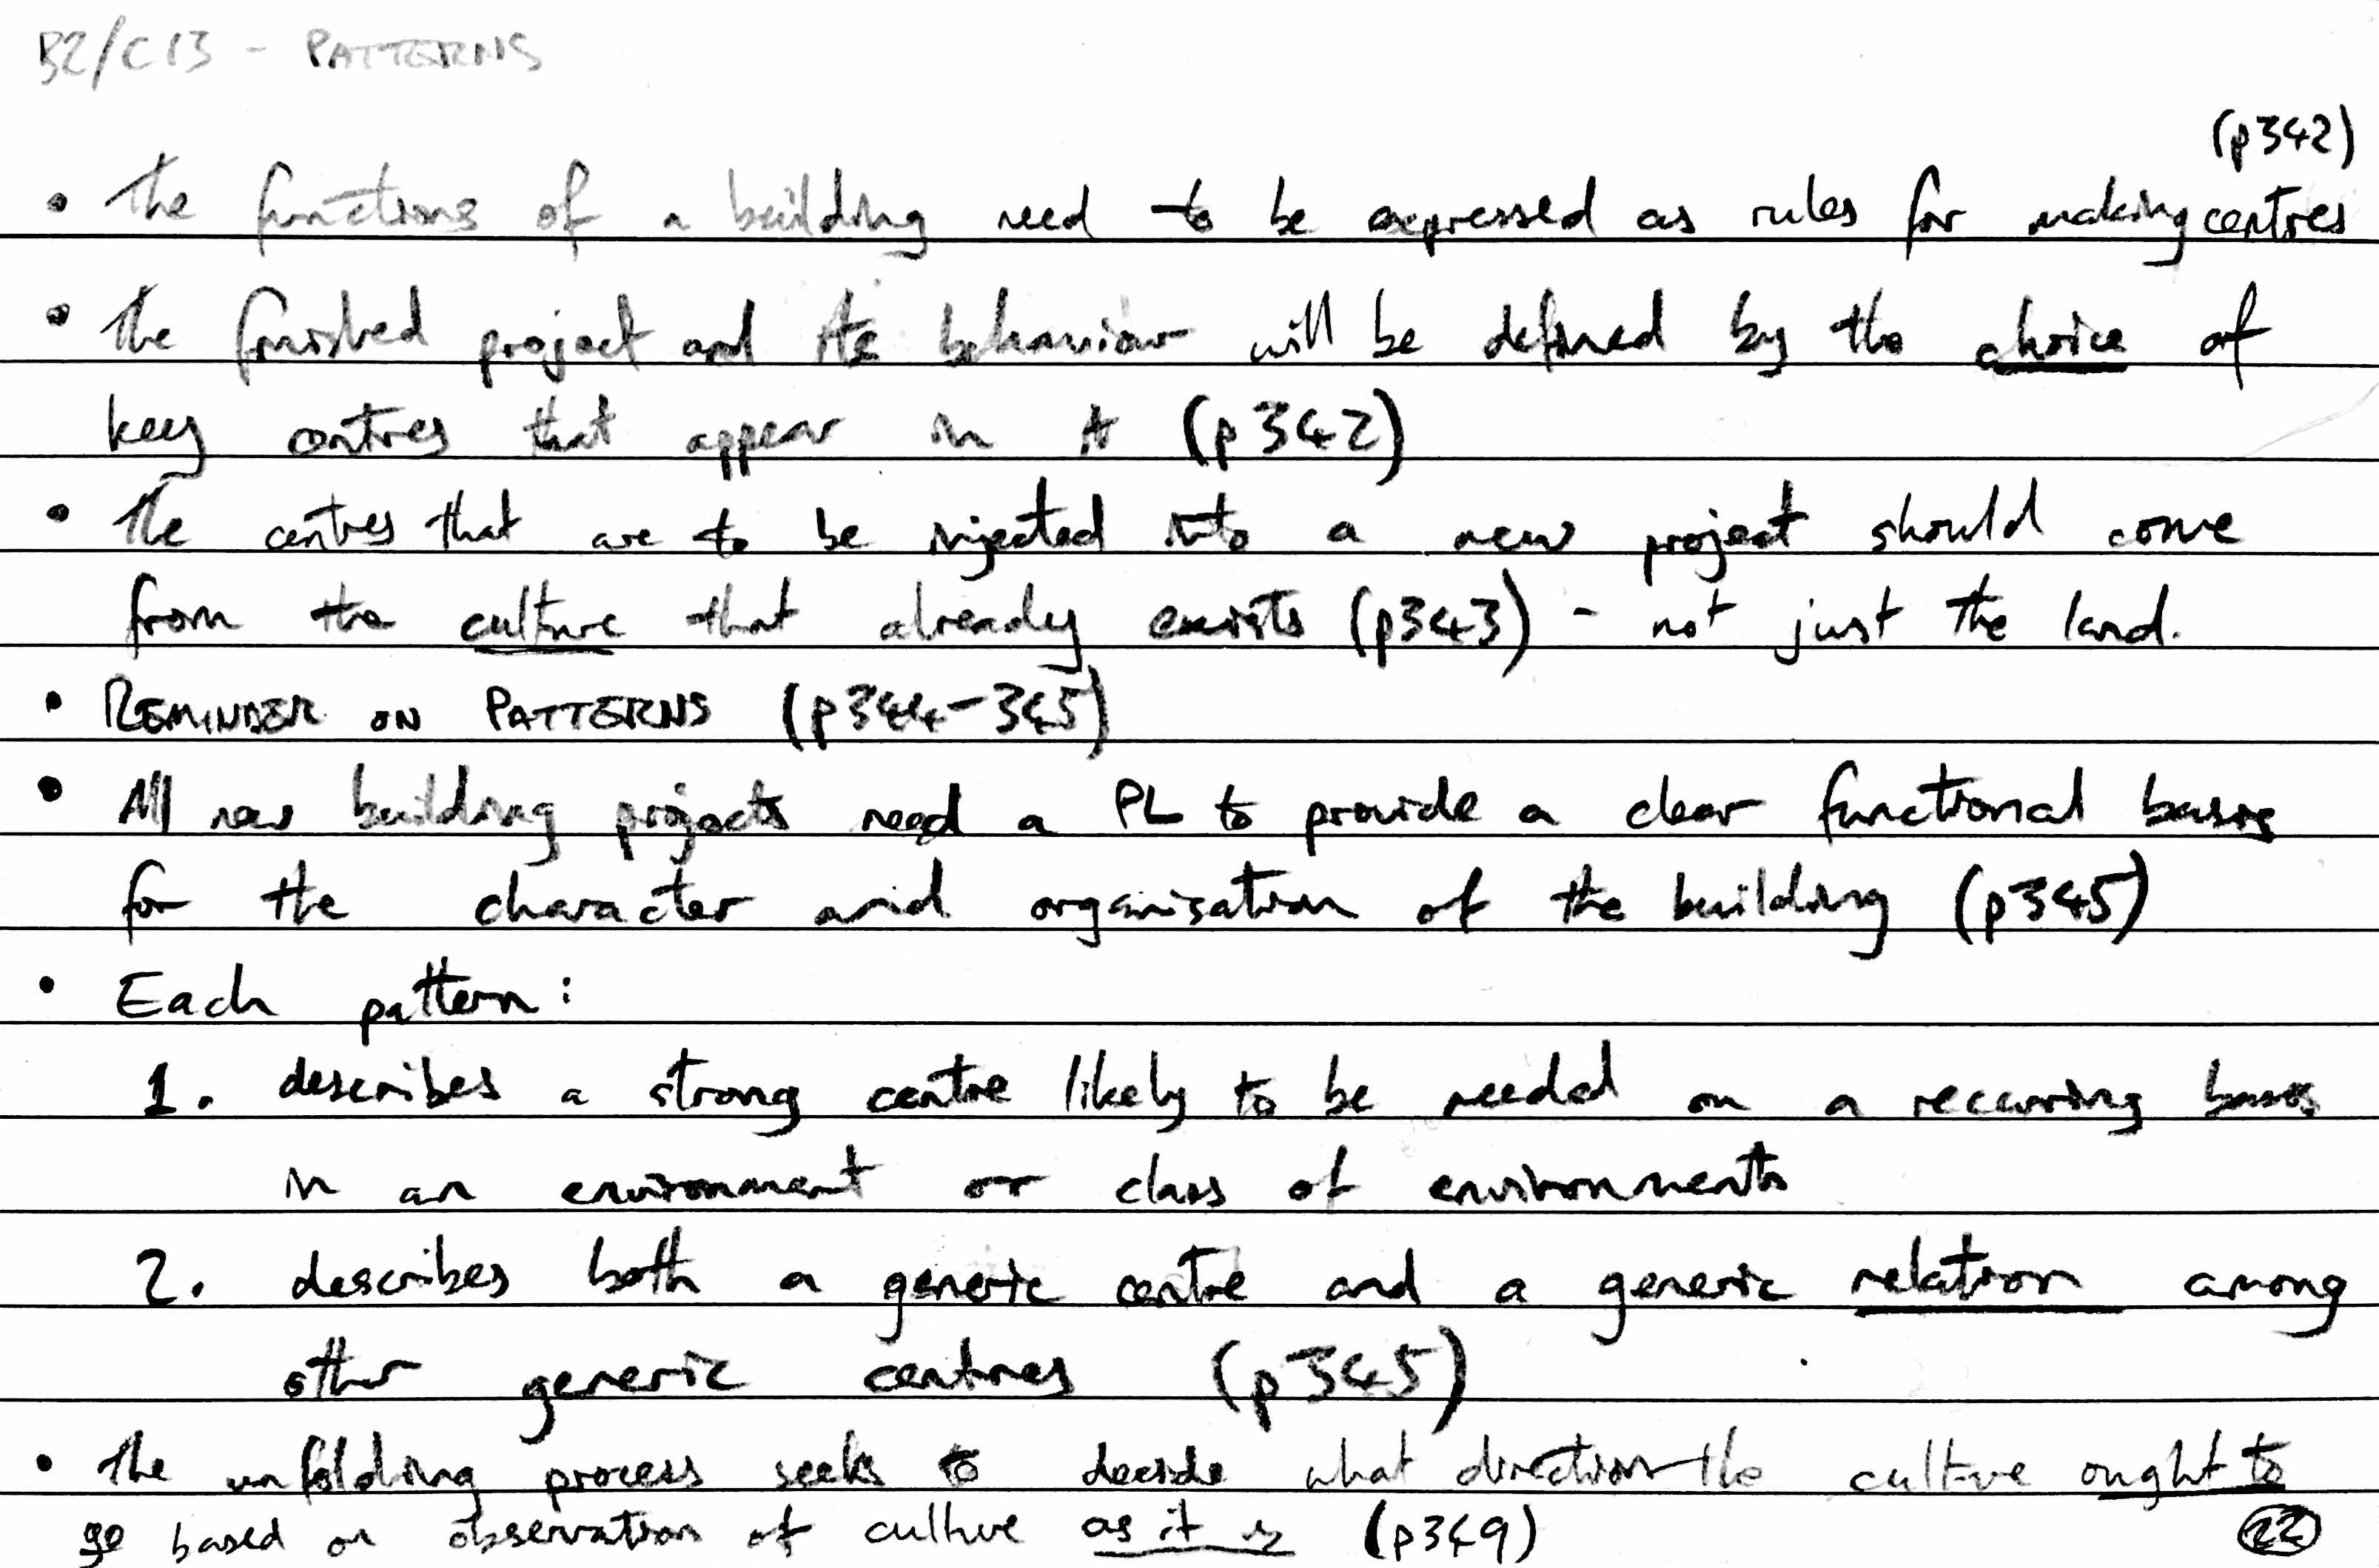 B2/C13 - PATTERNS
(p342)
• The functions of a building need to be expressed as rules for making centres
• The finished project and its behaviour will be defined by the choice of
key centres that appear in it (p342)
• The centres that are to be injected into a new project should come
from the culture that already exists (p343) - not just the land.
• REMINDER ON PATTERNS (p344-345)
• All new building projects need a PL to provide a clear functional basis
for the character and organisation of the building (p345)
• Each pattern:
1. describes a strong centre likely to be needed on a recurring basis
in an environment or class of environments
2. describes both a generic centre and a generic relation among
other generic centres (p345)
• The unfolding process seeks to decide what direction the culture ought to
go based on observation of culture as it is (p349)
22